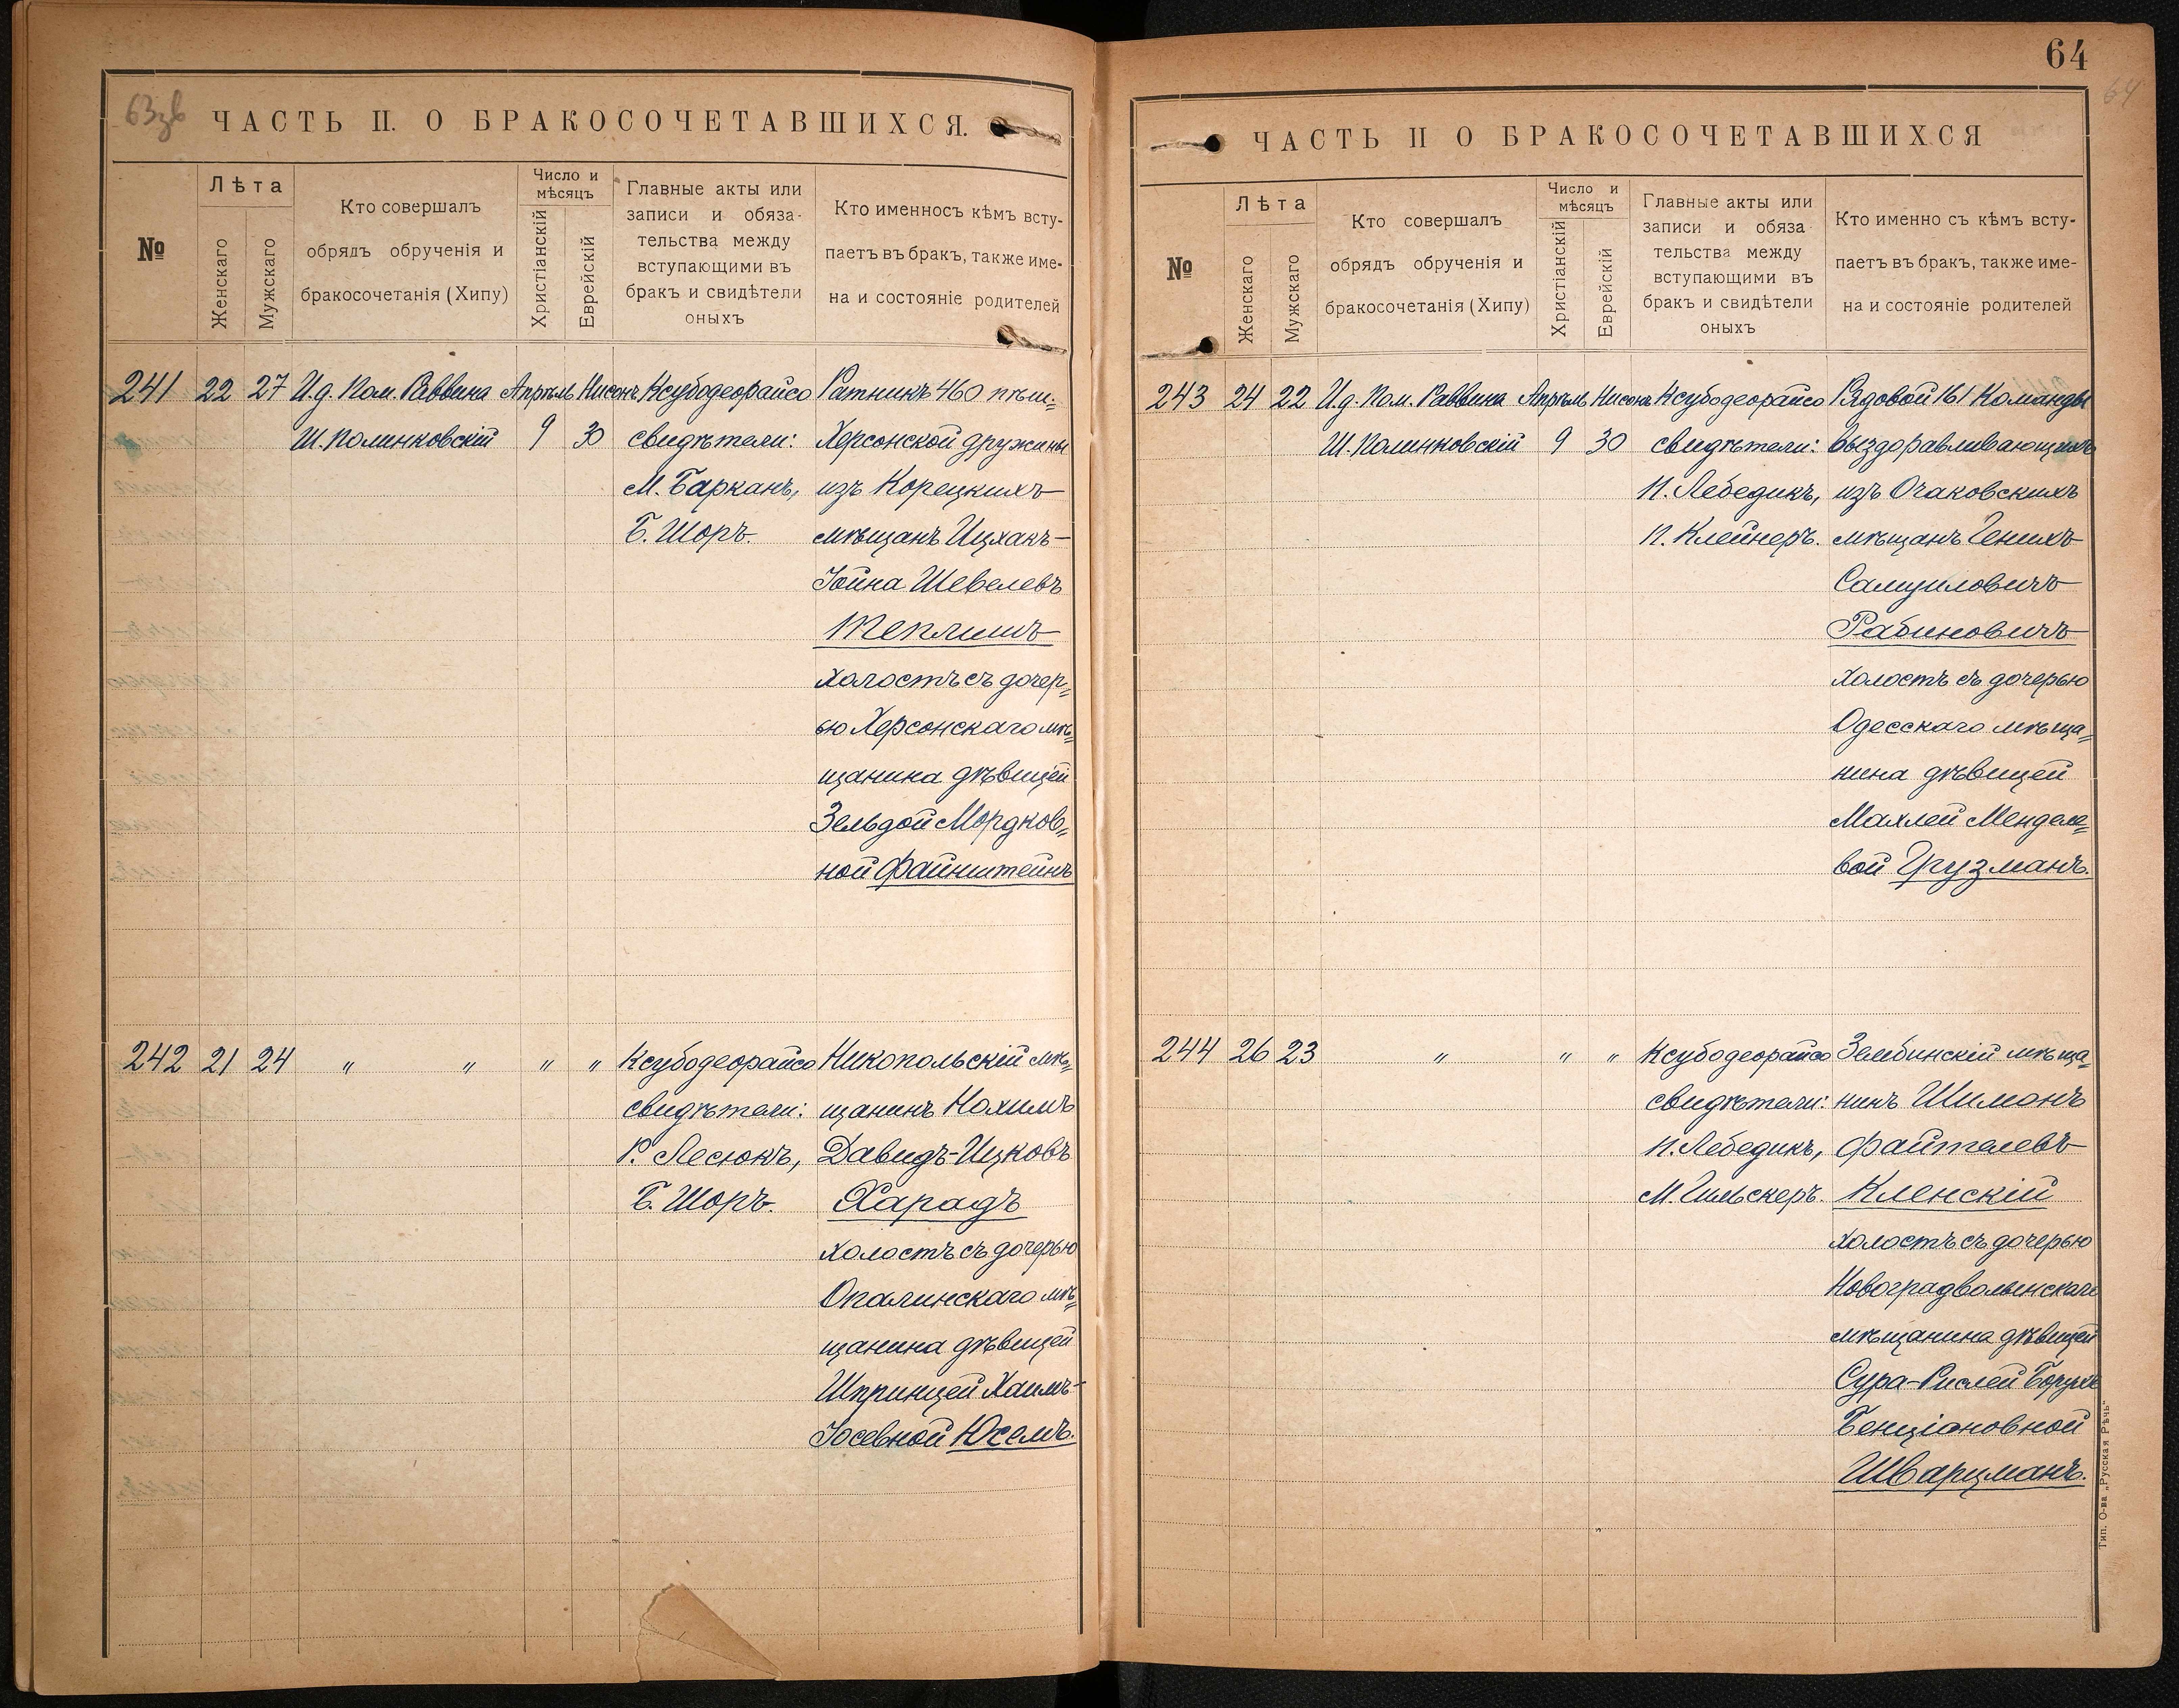 63зв
ЧАСТЬ II. О БРАКОСОЧЕТАВШИХСЯ.
№
Лѣта
Женскаго
Мужскаго
Кто совершалъ
обрядъ обрученія и
бракосочетанія (Хипу)
Число и
мѣсяцъ
Христіанскій
Еврейскій
Главные акты или
записи и обяза-
тельства между
вступающими въ
бракъ и свидѣтели
оныхъ
Кто именносъ кѣмъ всту-
паетъ въ бракъ, также име-
на и состояніе родителей
241 22 27 И.д. Пом. Раввина Апрѣль Нисонъ Ксубодеорайсо Ратникъ 460 пѣш.
Ш. Полинковскій 9 30 свидѣтели: Херсонской дружины
М. Барканъ, изъ Корецкихъ
Б. Шоръ. мѣщанъ Ицхакъ-
Іойна Шевелевъ
Теплишъ
холостъ съ дочер=
ью Херсонскаго мѣ=
щанина дѣвицей
Зельдой Мордков=
ной Файнштейнъ
242 21 24 " " " " Ксубодеорайсо Никопольскій мѣ=
свидѣтели: щанинъ Нохимъ
Р. Лесюкъ, Давидъ-Ицковъ
Б. Шоръ. Харадъ
холостъ съ дочерью
Опалинскаго мѣ=
щанина дѣвицей
Шпринцей Хаимъ-
Іосевной Юсемъ.
64
64
ЧАСТЬ II О БРАКОСОЧЕТАВШИХСЯ
№
Лѣта
Женскаго
Мужскаго
Кто совершалъ
обрядъ обрученія и
бракосочетанія (Хипу)
Число и
мѣсяцъ
Христіанскій
Еврейскій
Главные акты или
записи и обяза
тельства между
вступающими въ
бракъ и свидѣтели
оныхъ
Кто именно съ кѣмъ всту-
паетъ въ бракъ, также име-
на и состояніе родителей
243 24 22 И.д. Пом. Раввина Апрѣль Нисонъ Ксубодеорайсо Рядовой 161 Команды
Ш. Полинковскій 9 30 свидѣтели: выздоравливающихъ
П. Лебедикъ, изъ Очаковскихъ
П. Клейнеръ. мѣщанъ Генихъ
Самуиловичъ
Рабиновичъ
холостъ съ дочерью
Одесскаго мѣща=
нина дѣвицей
Махлей Менделе=
вой Грузманъ.
244 26 23 " " " Ксубодеорайсо Зембинскій мѣща=
свидѣтели: нинъ Шимонъ
П. Лебедикъ, Файтелевъ
М. Гильскеръ. Кленскій
холостъ съ дочерью
Новоградволынскаго
мѣщанина дѣвицей
Сура-Рислей Борухъ
Бенціановной
Шварцманъ.
Тип. О-ва „Русская Рѣчь“